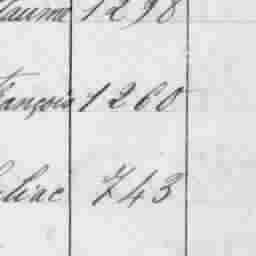 laume 1298
ançois 1260
liac 743